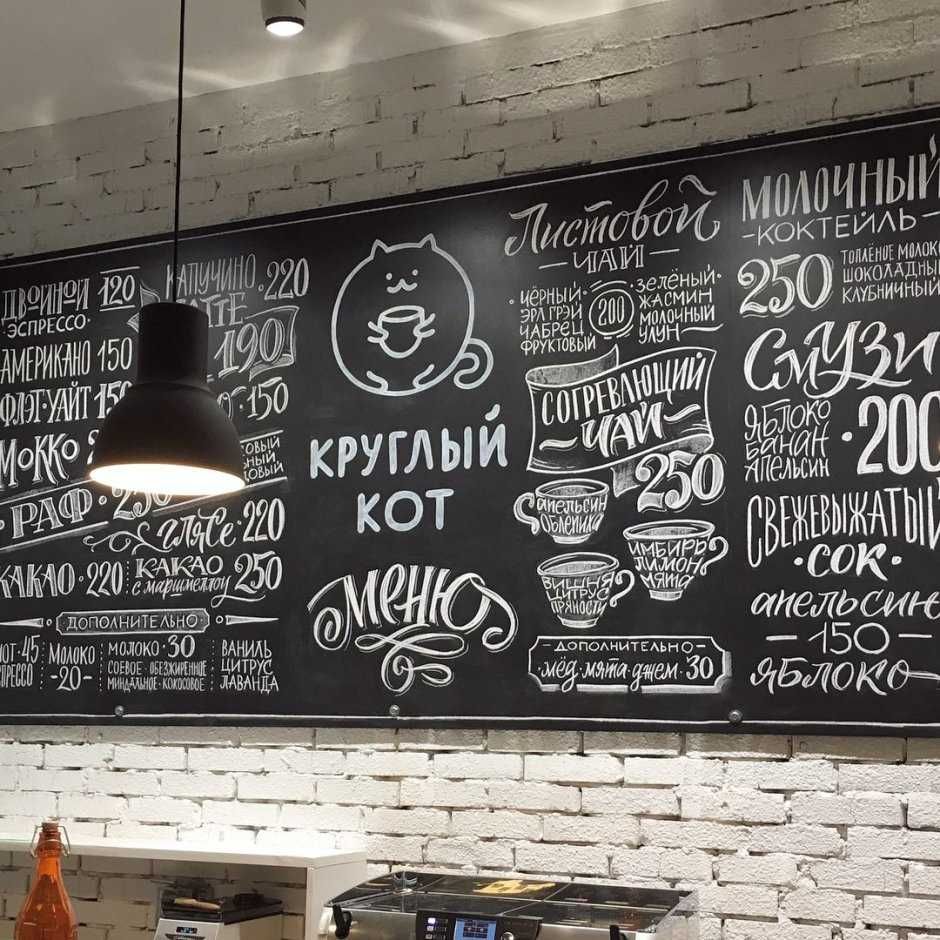 ДВОЙНОЙ 120
ЭСПРЕССО
АМЕРИКАНО 150
ФЛЭТ-УАЙТ
МОККО
РАФ 250
ГЛЯСЕ 220
КАКАО 220
КАКАО
С МАРШМЕЛЛОУ 250
КАПУЧИНО 220
190
150
ДОПОЛНИТЕЛЬНО
45
МОЛОКО
-20-
МОЛОКО 30
СОЕВОЕ · ОБЕЗЖИРЕННОЕ
МИНДАЛЬНОЕ · КОКОСОВОЕ
ВАНИЛЬ
ЦИТРУС
ЛАВАНДА
КРУГЛЫЙ
КОТ
МЕНЮ
Листовой
— ЧАЙ —
ЧЁРНЫЙ
ЭРЛ ГРЭЙ
ЧАБРЕЦ
ФРУКТОВЫЙ
200
ЗЕЛЁНЫЙ
ЖАСМИН
МОЛОЧНЫЙ
УЛУН
СОГРЕВАЮЩИЙ
ЧАЙ
250
апельсин
облепиха
ИМБИРЬ
ЛИМОН
МЯТА
ВИШНЯ
ЦИТРУС
ПРЯНОСТИ
ДОПОЛНИТЕЛЬНО
мёд · мята · джем · 30
МОЛОЧНЫЙ
- КОКТЕЙЛЬ -
250
ТОПЛЁНОЕ МОЛОКО
ШОКОЛАДНЫЙ
КЛУБНИЧНЫЙ
Смузи
ЯБЛОКО
БАНАН
АПЕЛЬСИН
200
СВЕЖЕВЫЖАТЫЙ
· СОК ·
апельсин
— 150 —
ЯБЛОКО